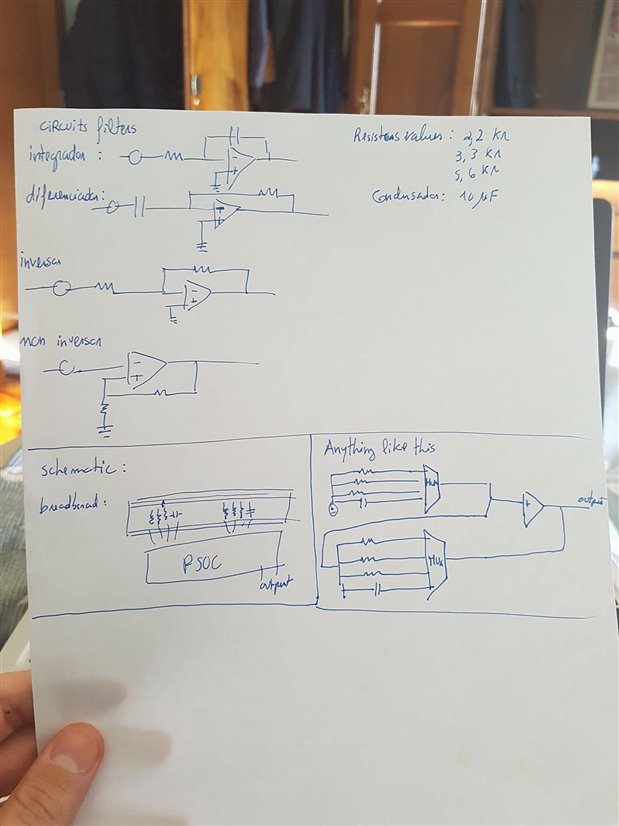 circuits filters
integrador :
diferenciador:
inversor
non inversor
Resistors values : 2,2 KΩ
3,3 KΩ
5,6 KΩ
Condensador: 10 µF
schematic :
breadboad:
PSOC
output
Anything like this
Mux
output
Mux